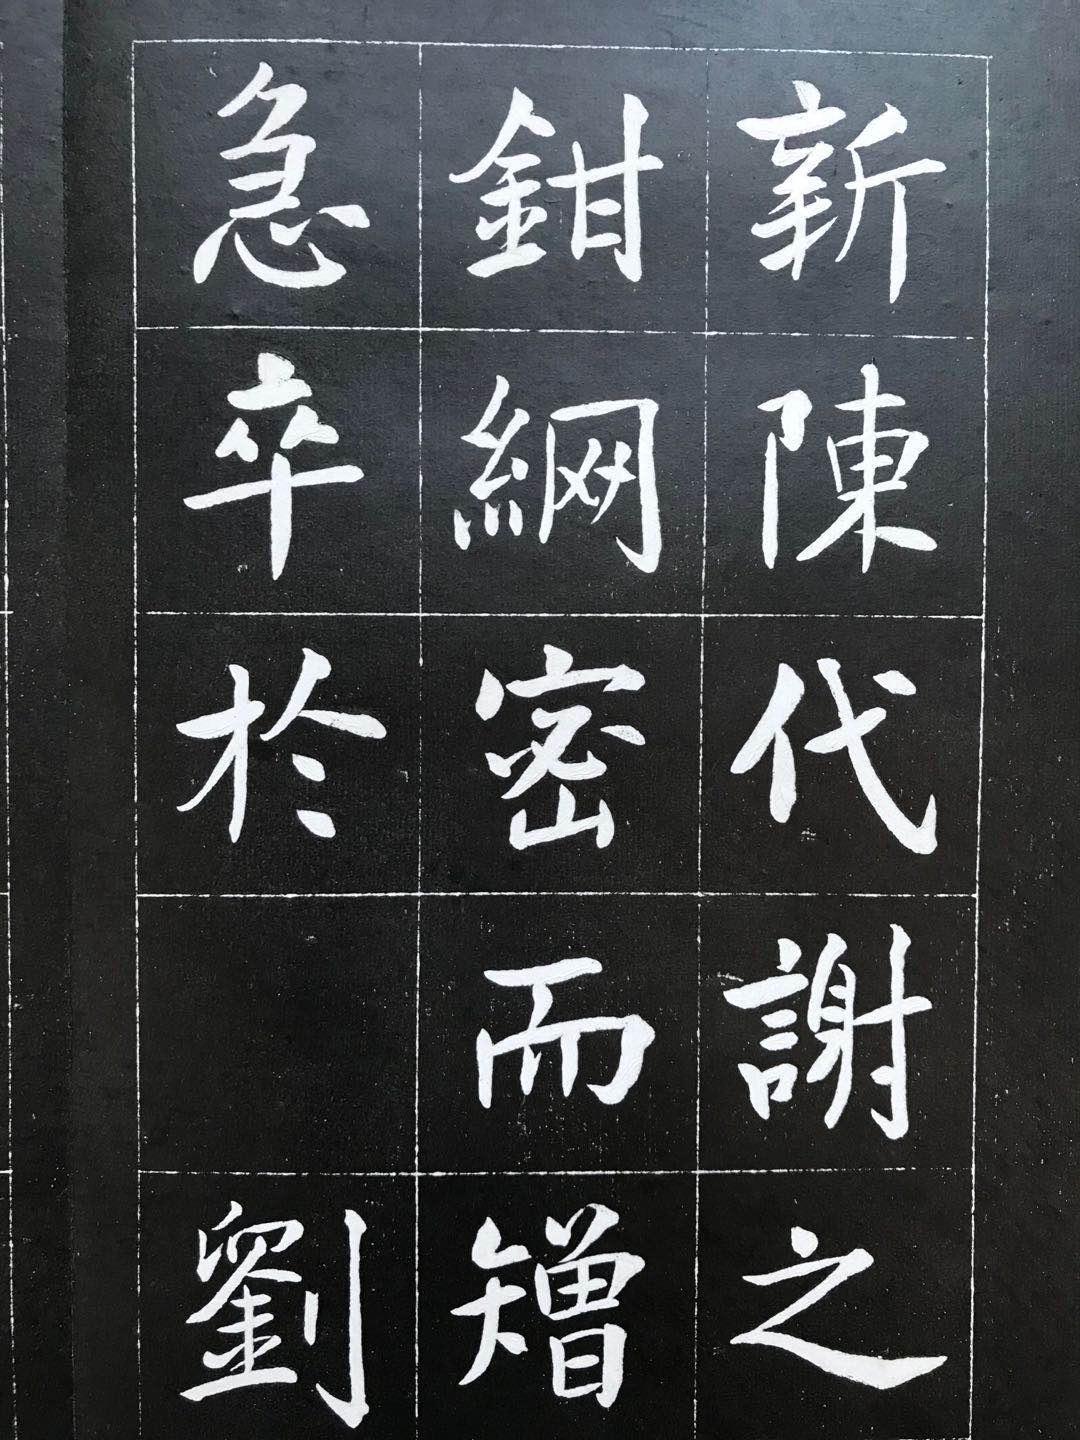 新陳代謝之
鉗網密而矰
急卒於劉